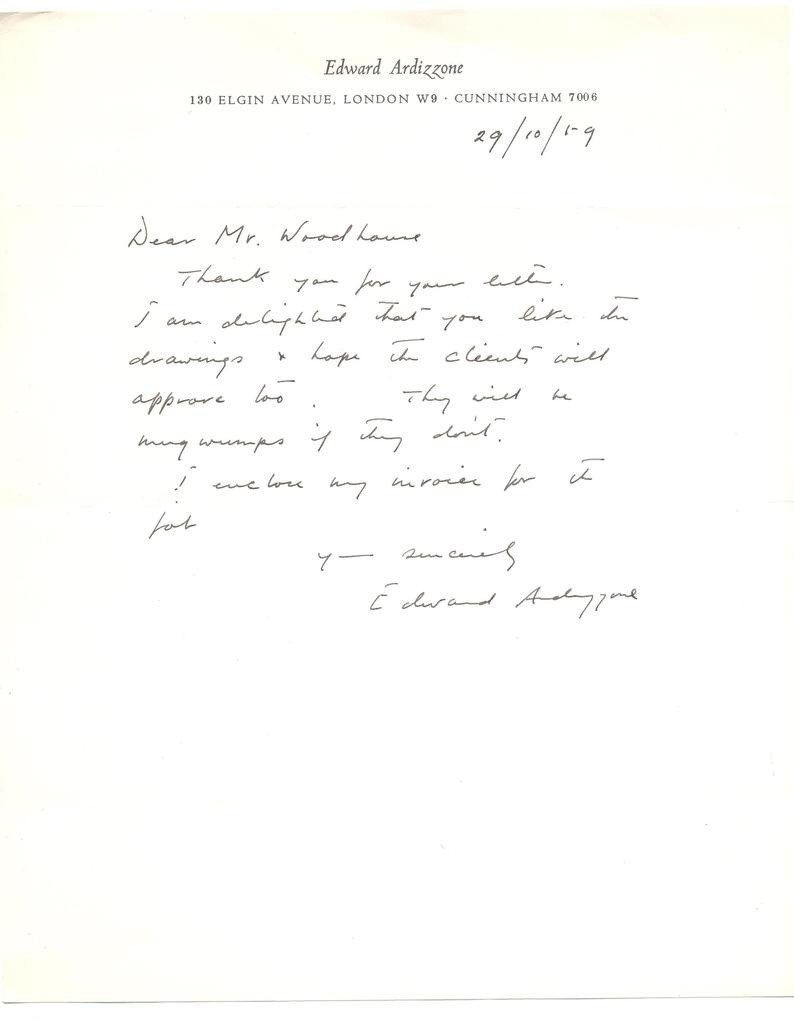 Edward Ardizzone
130 ELGIN AVENUE, LONDON W9 · CUNNINGHAM 7006
29/10/59
Dear Mr. Woodhouse
Thank you for your letter.
I am delighted that you like the
drawings & hope the clients will
approve too. They will be
mugwumps if they don't.
I enclose my invoice for the
job
Y— sincerely
Edward Ardizzone